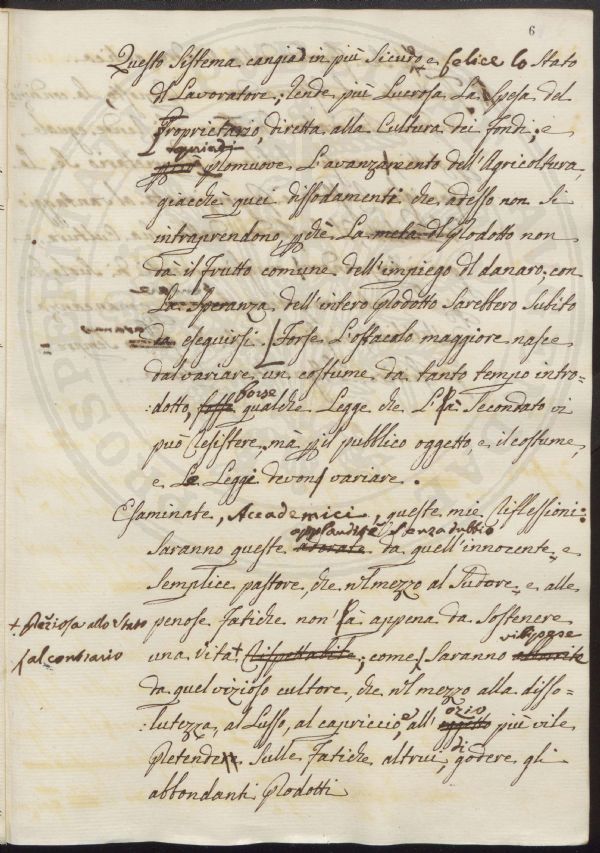 6
Questo Sistema cangiad in più Sicuro e felice lo Stato
dl Lavoratore; rende più Lucrosa La Spesa del
Proprietario, diretta alla Cultura dei fondi; e
quindi
promuove L'avanzamento dell'Agricoltura,
giacchè quei dissodamenti che adesso non Si
intraprendono, pchè La metà dl Prodotto non
dà il Frutto comune dell'impiego dl danaro, con
La Speranza dell'intero Prodotto Sarebbero Subito
da eseguirsi. Forse L'ostacolo maggiore nasce
dal variare un costume da tanto tempo intro-
forse
:dotto, fosse qualche Legge che L'hà Secondato vi
può resistere, mà pil pubblico oggetto, e il costume,
e Le Leggi devon variare.
Esaminate, Accademici, queste mie riflessioni:
applaudite senza dubbio
Saranno queste da quell'innocente, e
Semplice pastore, che nl mezzo al Sudore, e alle
+ Preziosa allo Stato
penose fatiche non hà appena da Sostenere
vilipese
una vita+ rispettabile; come Saranno
/ al contrario
da quel vizioso cultore, che nl mezzo alla disso-
ozio
:lutezza, al Lusso, al capriccio, e all' più vile
di
Pretende Sulle fatiche altrui, godere gli
abbondanti Prodotti